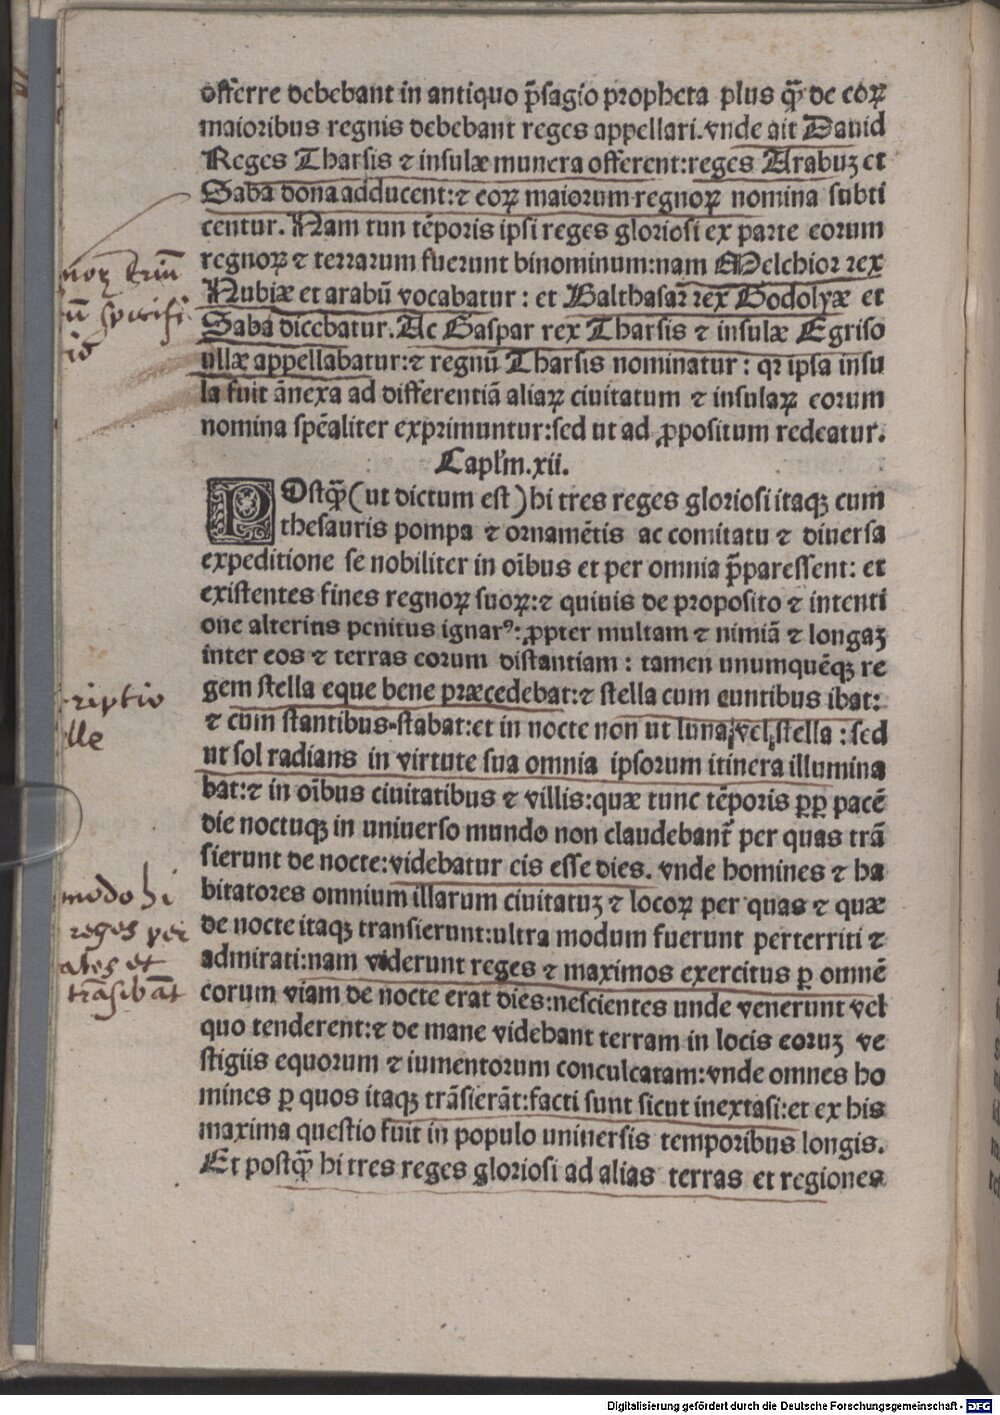 offerre debebant in antiquo p̄sagio propheta plus q̄ȝ de eoꝝ
maioribus regnis debebant reges appellari.vnde ait Dauid
Reges Tharsis ⁊ insulæ munera offerent:reges Arabuȝ et
Saba dona adducent:⁊ eoꝝ maiorum regnoꝝ nomina subti
centur. Nam tun tēporis ipsi reges gloriosi ex parte eorum
regnoꝝ ⁊ terrarum fuerunt binominum:nam Melchior rex
Nubiæ et arabū vocabatur : et Balthasar rex Godolyæ et
Saba dicebatur. Ac Gaspar rex Tharsis ⁊ insulæ Egriso
ullæ appellabatur:⁊ regnū Tharsis nominatur : qꝛ ipsa insu
la fuit ānexa ad differentiā aliaꝝ ciuitatum ⁊ insulaꝝ eorum
nomina spēaliter exprimuntur:sed ut ad ꝓpositum redeatur.
Capl'm.xii.
POstq̄ȝ (ut dictum est) hi tres reges gloriosi itaqꝫ cum
thesauris pompa ⁊ ornamētis ac comitatu ⁊ diuersa
expeditione se nobiliter in oībus et per omnia p̄paressent: et
existentes fines regnoꝝ suoꝝ:⁊ quiuis de proposito ⁊ intenti
one alterius penitus ignarꝰ: ꝓpter multam ⁊ nimiā ⁊ longaȝ
inter eos ⁊ terras eorum distantiam : tamen unumquēqꝫ re
gem stella eque bene præcedebat:⁊ stella cum euntibus ibat:
⁊ cum stantibus stabat:et in nocte non ut luna,vel stella : sed
ut sol radians in virtute sua omnia ipsorum itinera illumina
bat:⁊ in oībus ciuitatibus ⁊ villis:quæ tunc tēporis ꝑꝑ pacē
die noctuqꝫ in uniuerso mundo non claudebant᷑ per quas trā
sierunt de nocte:videbatur eis esse dies. vnde homines ⁊ ha
bitatores omnium illarum ciuitatuȝ ⁊ locoꝝ per quas ⁊ quæ
de nocte itaqꝫ transierunt:ultra modum fuerunt perterriti ⁊
admirati:nam viderunt reges ⁊ maximos exercitus ꝑ omnē
eorum viam de nocte erat dies:nescientes unde venerunt vel
quo tenderent:⁊ de mane videbant terram in locis eoruȝ ve
stigiis equorum ⁊ iumentorum conculcatam:vnde omnes ho
mines ꝑ quos itaqꝫ trāsierāt:facti sunt sicut inextasi:et ex his
maxima questio fuit in populo uniuersis temporibus longis.
Et postq̄ȝ hi tres reges gloriosi ad alias terras et regiones
noꝝ triū
riptio
lle
modo hi
reges
et
trāsibāt
Digitalisierung gefördert durch die Deutsche Forschungsgemeinschaft - DFG